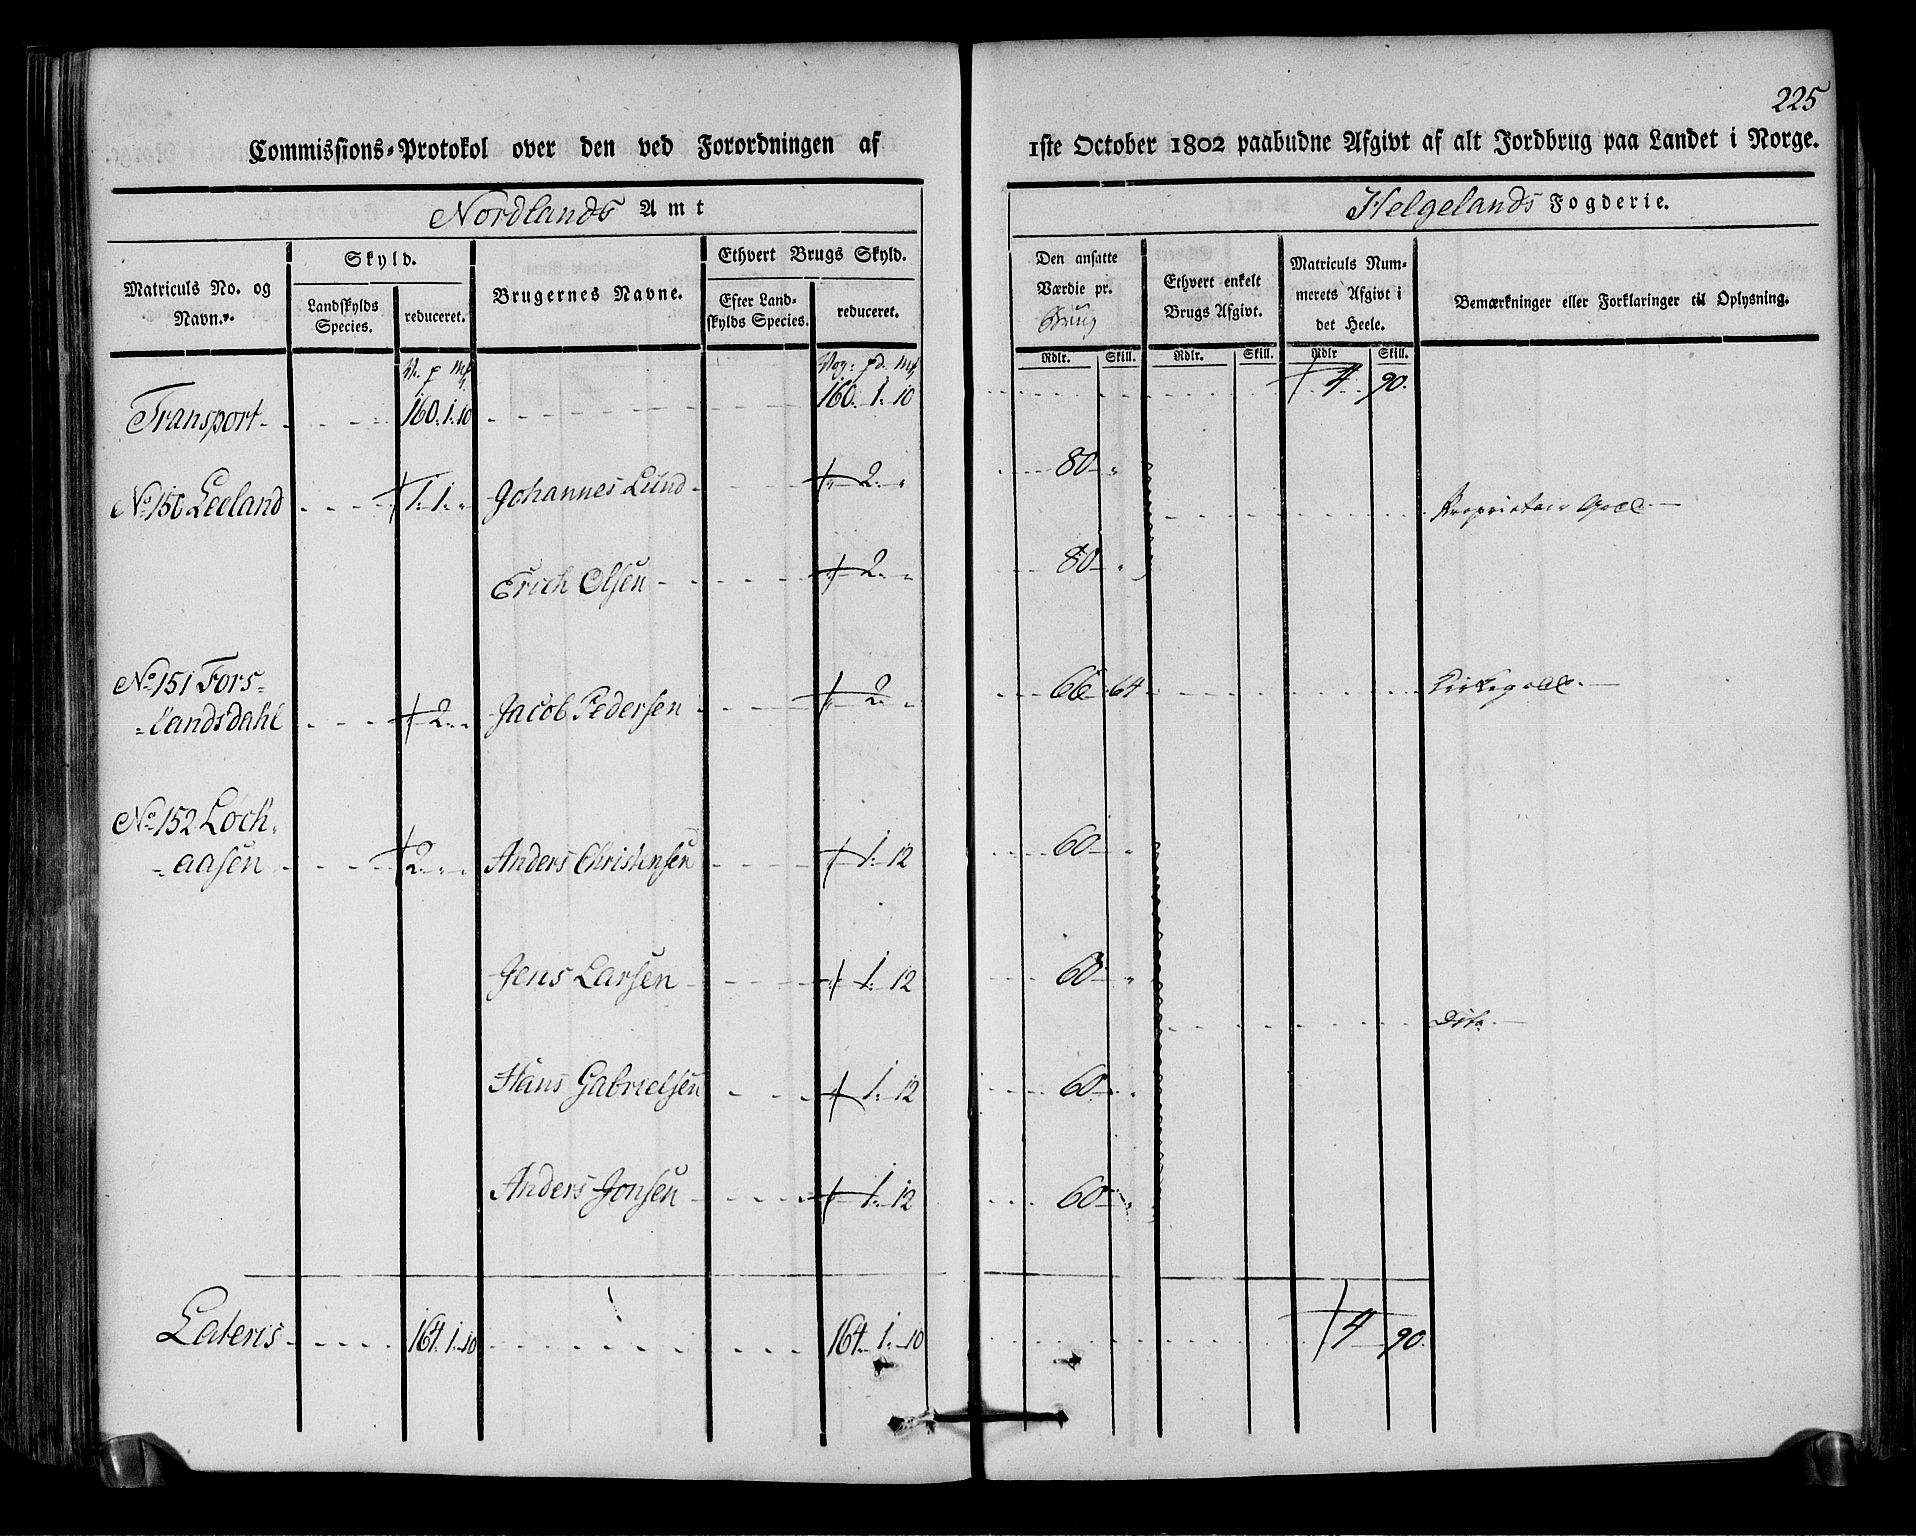 225
Commissions-Protokol over den ved Forordningen af 1ste October 1802 paabudne Afgivt af alt Jordbrug paa Landet i Norge.
Nordlands Amt
Helgelands Fogderie.
Matriculs No. og Navn.
Skyld.
Landskylds Species.
reduceret.
Brugernes Navne.
Ethvert Brugs Skyld.
Efter Landskylds Species.
reduceret.
Den ansatte Værdie pr. Brug
Ethvert enkelt Brugs Afgivt.
Matriculs Nummerets Afgivt i det Heele.
Bemærkninger eller Forklaringer til Oplysning.
Rdlr. Skill. Rdlr. Skill. Rdlr Skill.
V. p. M
Vog: pd. M
Transport 160. 1. 10 160. 1. 10 4 90.
No 150 Leeland 1. 1. " Johannes Lund " 2. " 80 "
Proprietair Godt.
Erich Olsen " 2. " 80 "
No 151 Fors=
=landsdahl " 2. " Jacob Pedersen " 2 " 66 64 Kirkegodt.
No 152 Löch=
=aasen 2. " " Anders Christensen " 1. 12 60 "
Jens Larsen " 1. 12 60 "
Dito
Hans Gabrielsen " 1. 12 60 "
Anders Jonsen " 1. 12 60 "
Lateris 164. 1. 10 164. 1. 10 4 90.